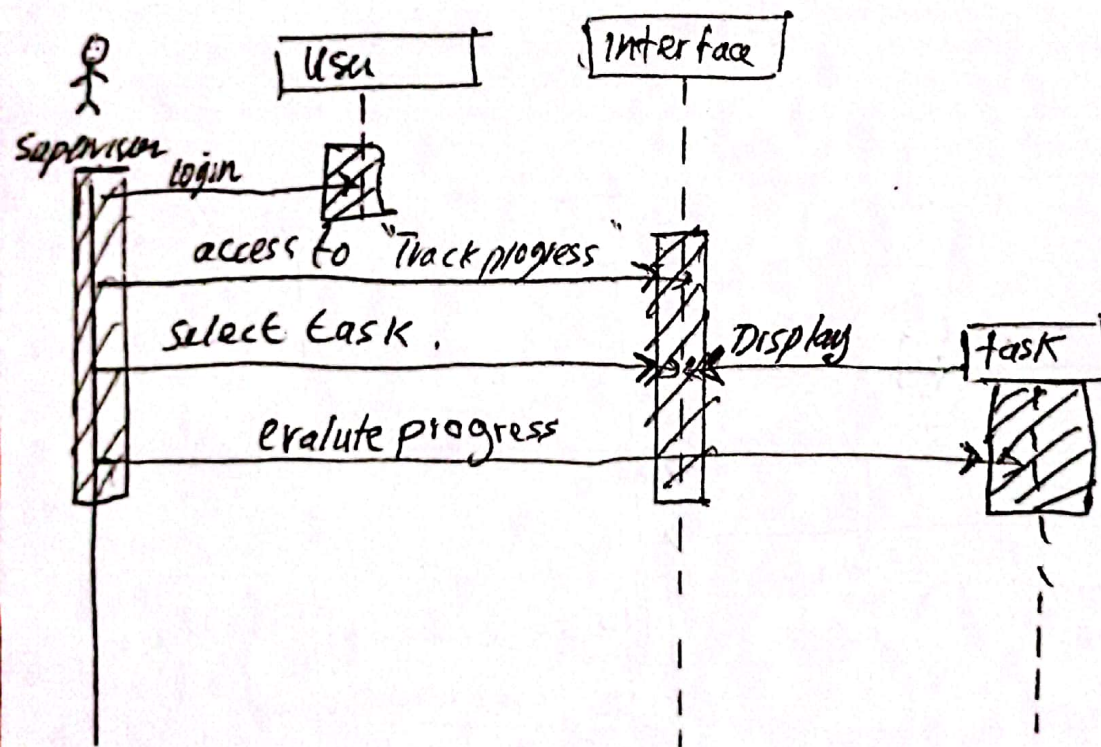 User
Interface
Supervisor
login
access to "Track progress"
select task.
Display
task
evalute progress